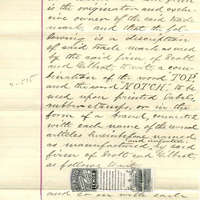 is the originator and exclu-
sive owner of the said trade
mark, and that the fol-
lowing is a description
of said trade mark as used
by the said firm of Scott
and Gilbert, to wit: a com-
bination of the word TOP,
and the word NOTCH, to be
used upon printed labels,
rubber stamps, or in the
form of a brand, connected
with each name of the several
articles hereinbefore named
and imported
as manufactured by said
firm of Scott and Gilbert,
as follows to wit:
and so on with each